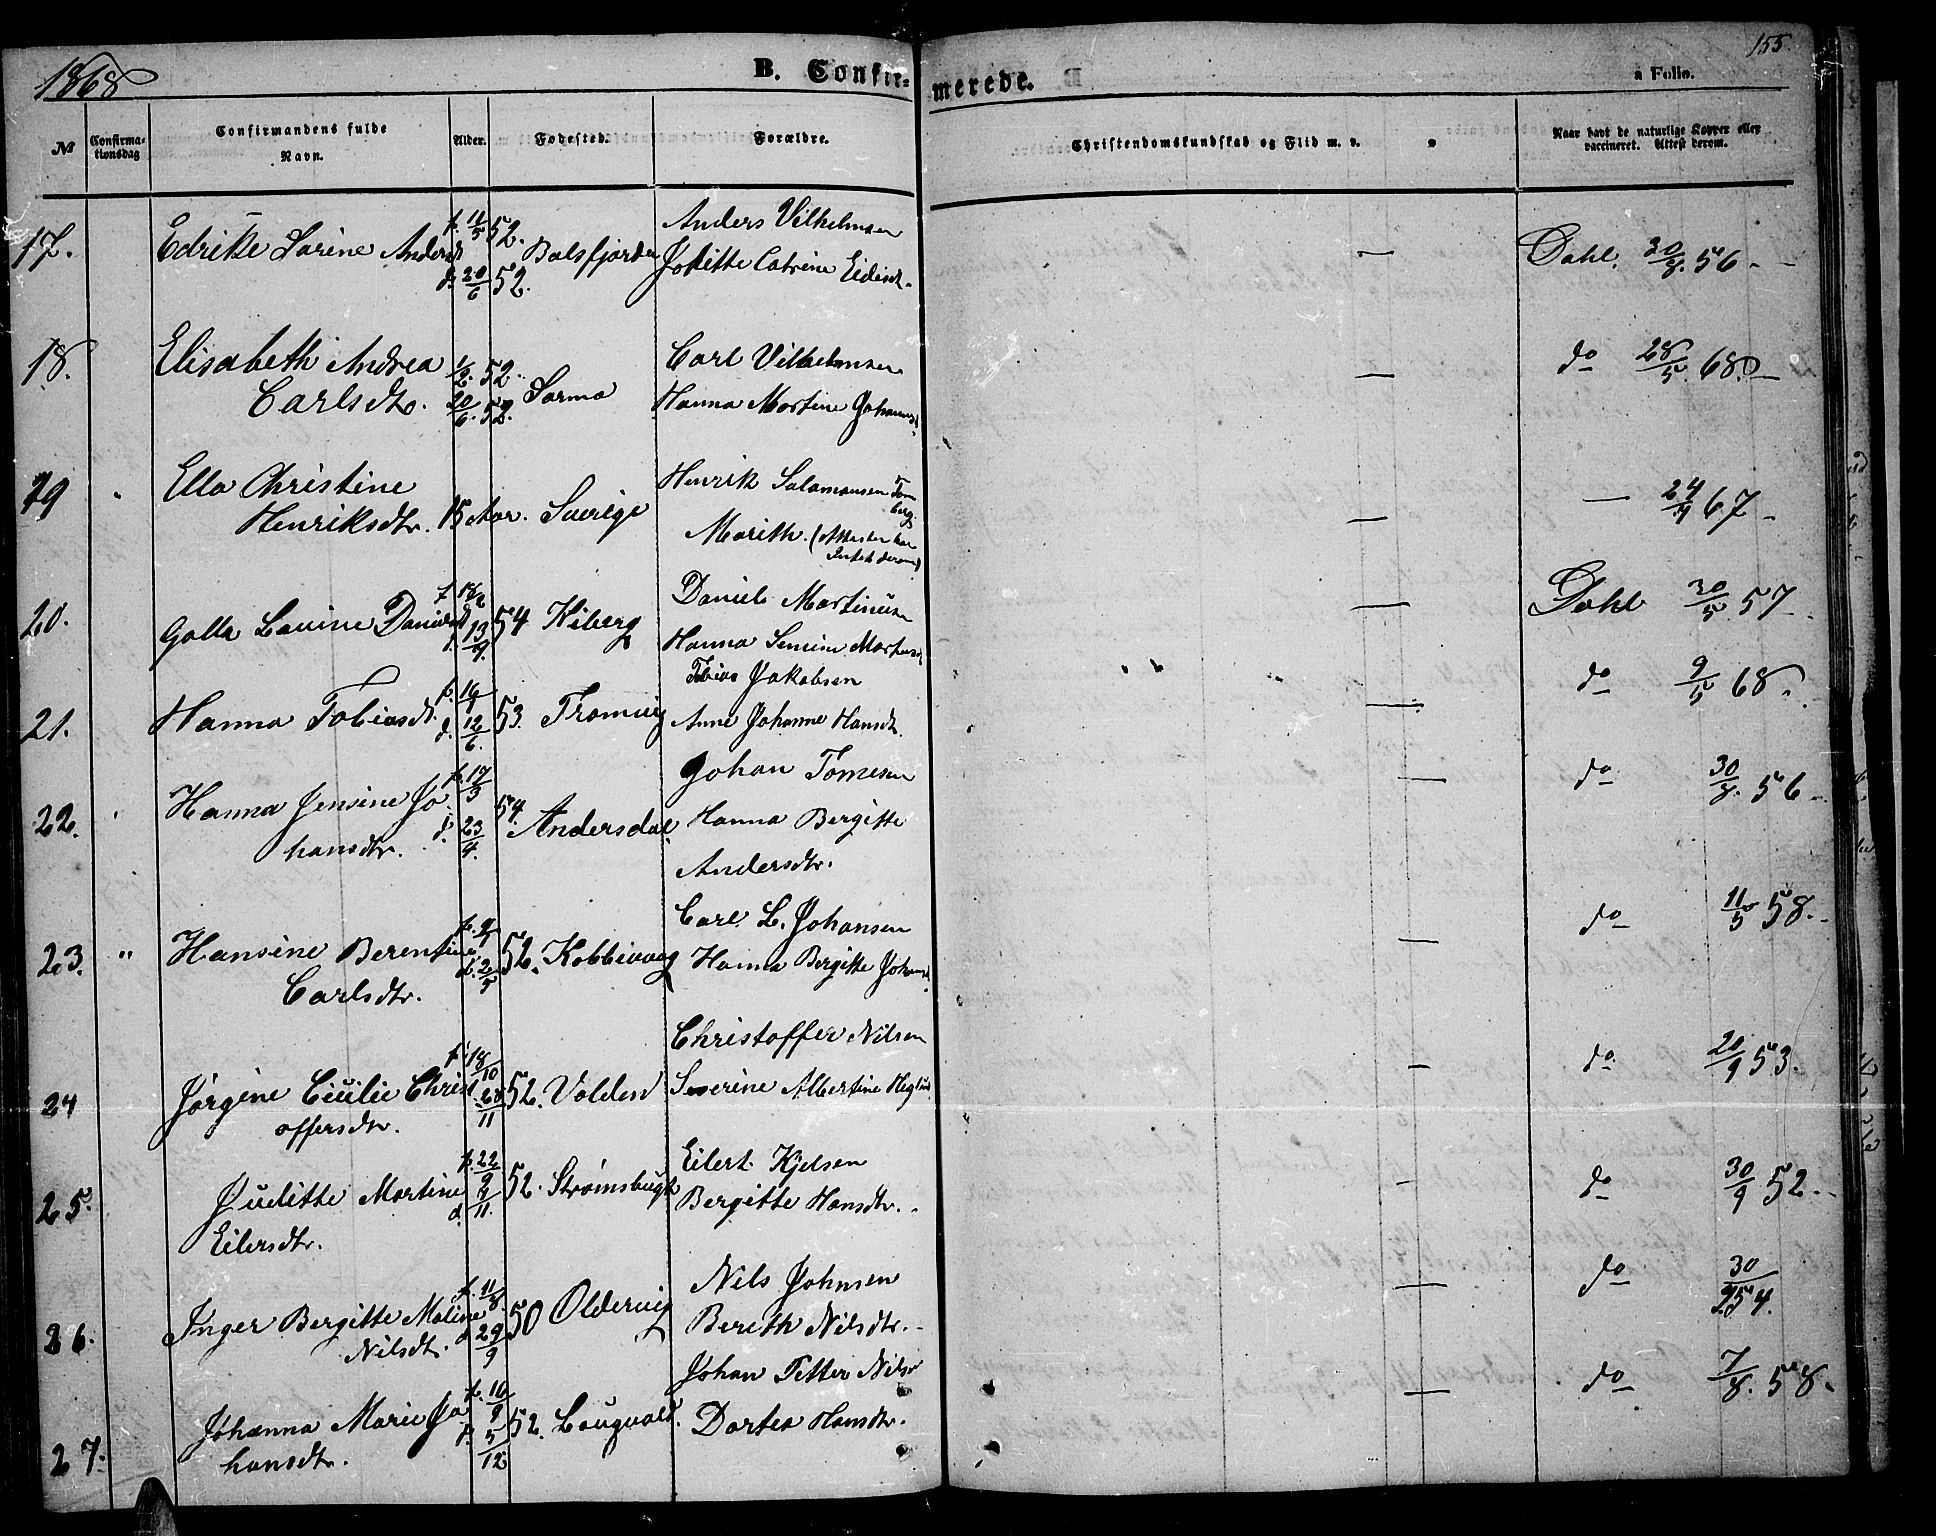 1868
B. Confir-
merede.
155
a Folio.
№
Confirma-
tionsdag
Confirmandens fulde
Navn.
Alder.
Fødested.
Forældre.
Christendomskundskab og Flid m. v.
Naar havt de naturlige Kopper eller
vaccineret. Attest derom.
17. Edrikke Sarine Andersd f. 11/5 52. d. 20/6 52. Balsfjorden
Anders Vilhelmsen
Catrine
— Dahl. 30/8. 56.
18. Elisabeth Andrea
Carlsdtr. 1/2. 52. 20/6. 52. Sarma
Carl Vilhelmsen
Hanna Martine Johannsd.
— do 28/5. 68.
19 Ella Christine
Henriksdtr. 15 Aar. Sverige
Henrik Salamonsen
Marith. (Attesten har
Intet derom)
— — 67
20. Lavine Danielsd 54 Kiberg
Daniel Martinusen
Hanna
— Dahl 30/5. 57
21. Hanna Tobiasdt. d. 12/6. 53. Tromvig
Tobias Jakobsen
Anne Johanne Hansdt.
— do 9/5 68.
22. Hanna Jensine Jo
hansdtr. f. 17/3 d. 23/4. 54 Andersdal
Johan Tomesen
Hanna Bergitte
Andersdtr.
— do 30/8. 56
23. " Hansine Berentine
Carlsdtr. d. 2/5 52. Kobbevaag
Carl L. Johansen
Hanna Bergitte Johansd.
— do 11/5 58.
24 Jørgine Cicilie Christ
offersdtr. f. 18/10 28/11 52. Volden
Christoffer Nilsen
Severine Albertine
— do. 20/9 53.
25. Juditte Martine
Eilersdtr. f. 22/9 d. 7/11. 52. Strømsbugt
Eilert Kjelsen
Bergitte Hansdtr.
— do 30/9 52.
26. Inger Bergitte Maline
Nilsdt. f. 11/8. d. 29/9 50 Oldervig
Nils Johnsen
Bereth Nilsdtr.
— do 30/9 54.
27. Johanna Marie Jo
hansdtr. f. 16/9 5/12 52.
Johan Petter Nilsen
Dortea Hansdtr.
— do 7/8. 58.